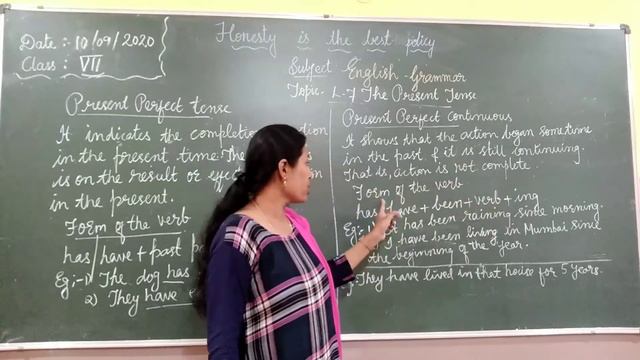 Honesty is the best policy
Date :- 10/09/2020
Class : VII
Subject - English - Grammar
Topic - L-7 The Present Tense
Present Perfect tense
It indicates the completion
in the present time. The
is on the result or
in the present.
Form of the verb
has/have + past
Eg:-1) The dog has
2) They have
Present Perfect Continuous
It shows that the action began sometime
in the past & it is still continuing.
That is, action is not complete.
Form of the verb
has have + been + verb + ing
Eg:- has been raining since morning.
have been living in Mumbai since
the beginning of the year.
They have lived in that house for 5 years.